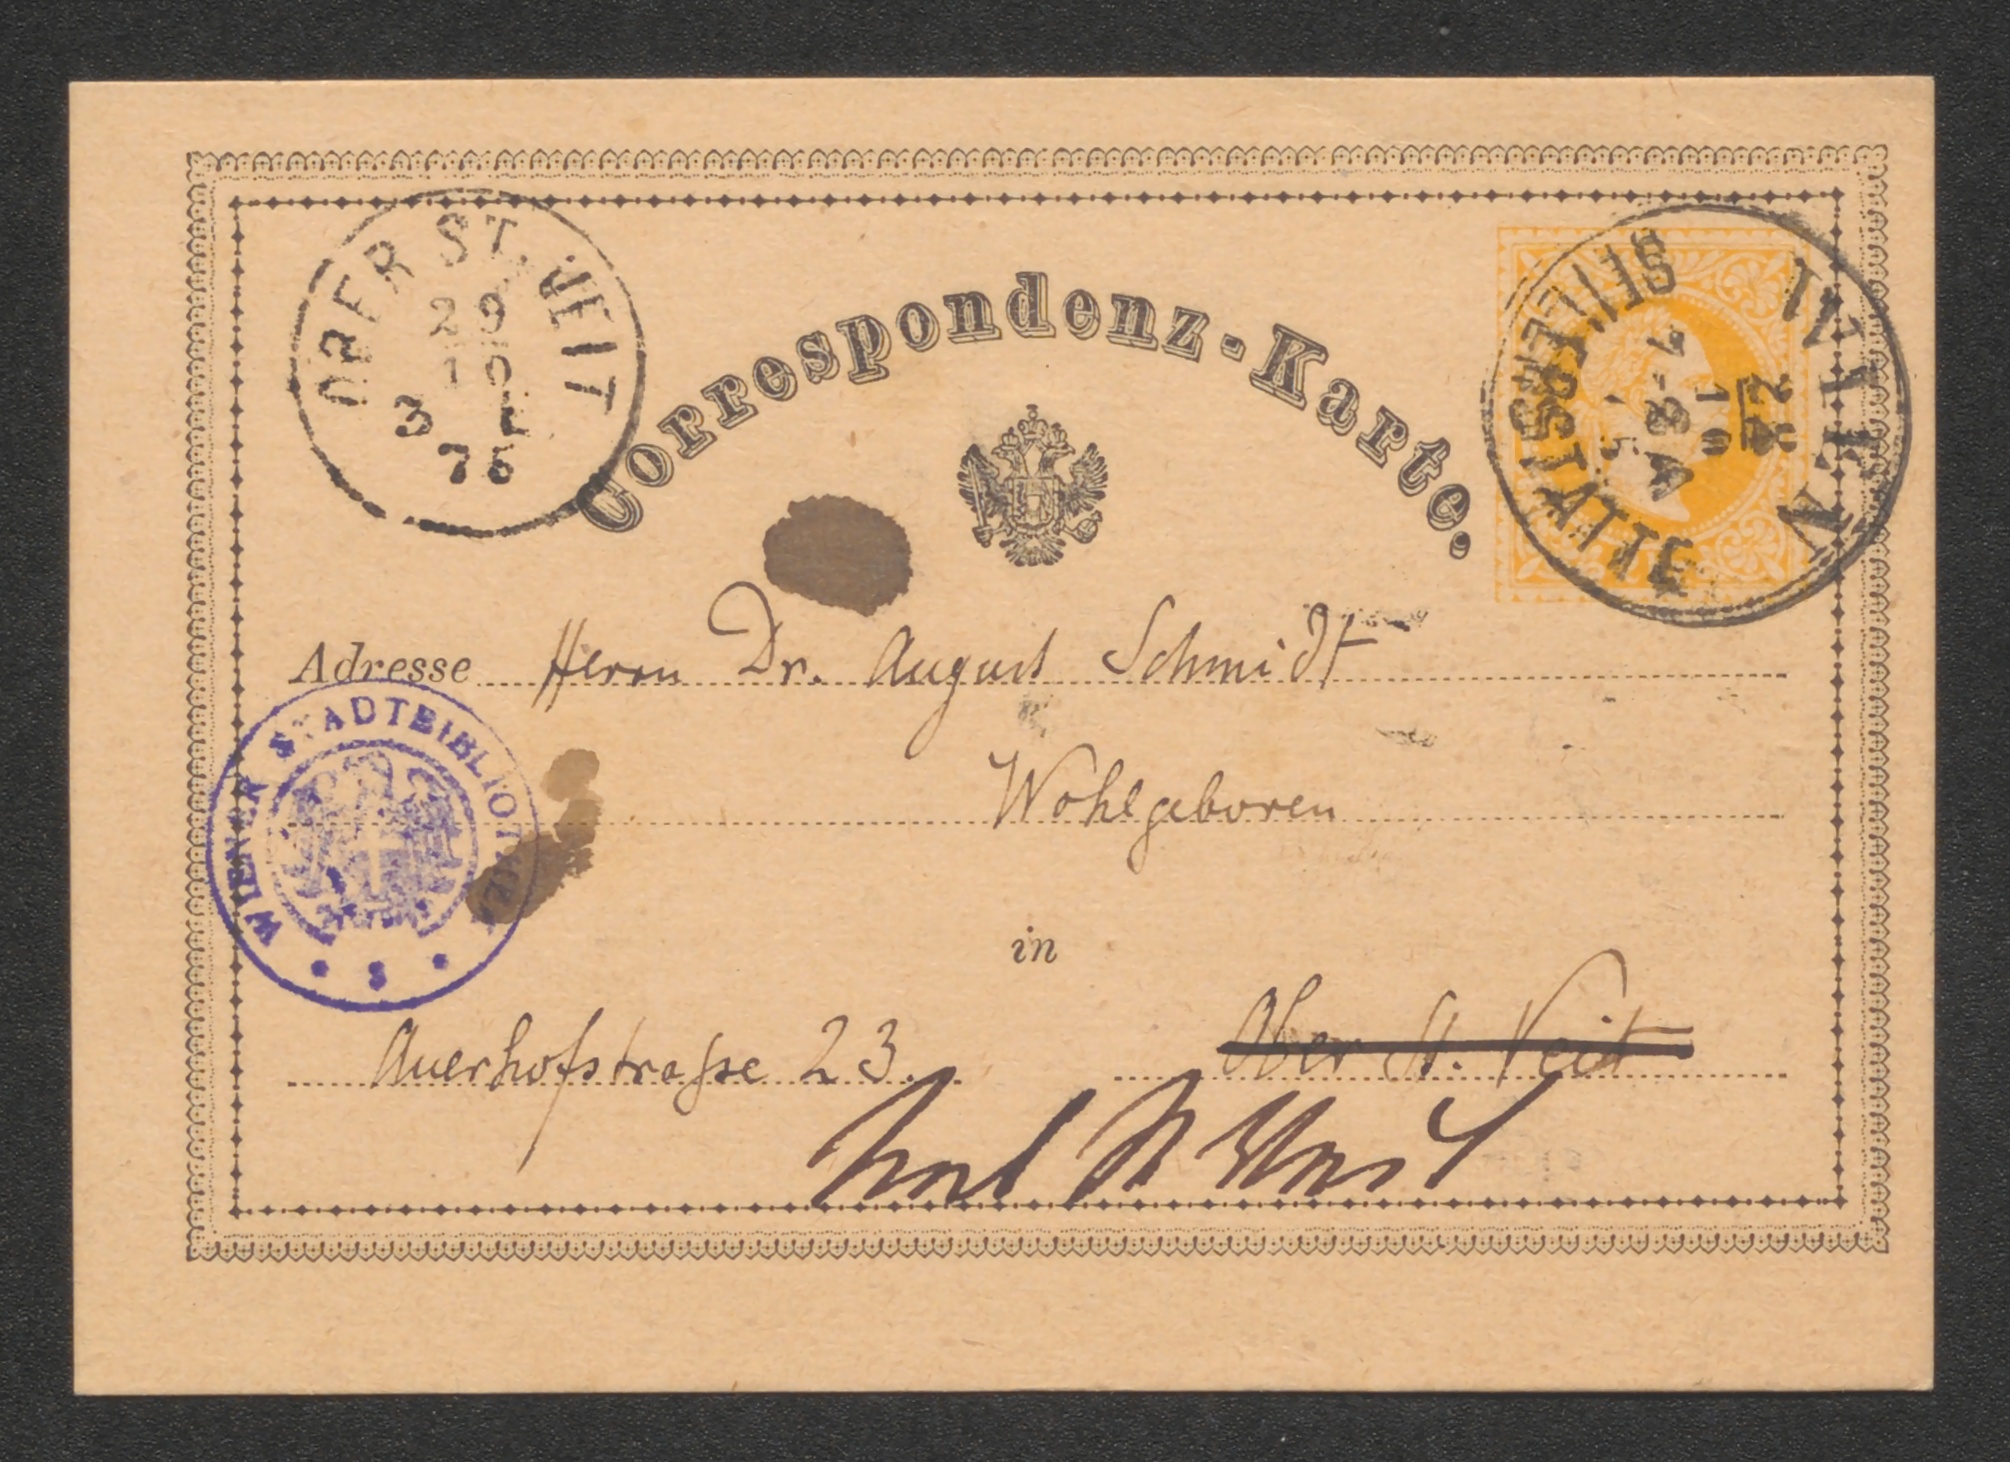 OBER ST. VEIT
29
10
3 E
75
Correspondenz-Karte.
WIEN
SEILERSTÄTTE
28
10
7-8 A
75
Adresse Herrn Dr. August Schmidt
Wohlgeboren
WIENER STADTBIBLIOTHEK
S
in
Auerhofstrasse 23. Ober St. Veit